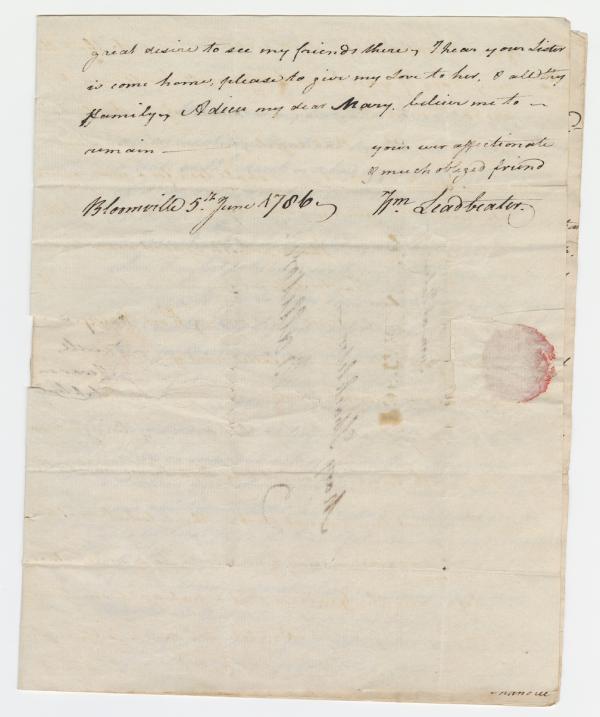 great desire to see my friends there, I hear your Sister
is come home, please to give my Love to her, & all thy
Family, Adieu my dear Mary, believe me to
remain — your ever affectionate
& much obliged friend
Bloomville 5.th June 1786 Wm Leadbeater.